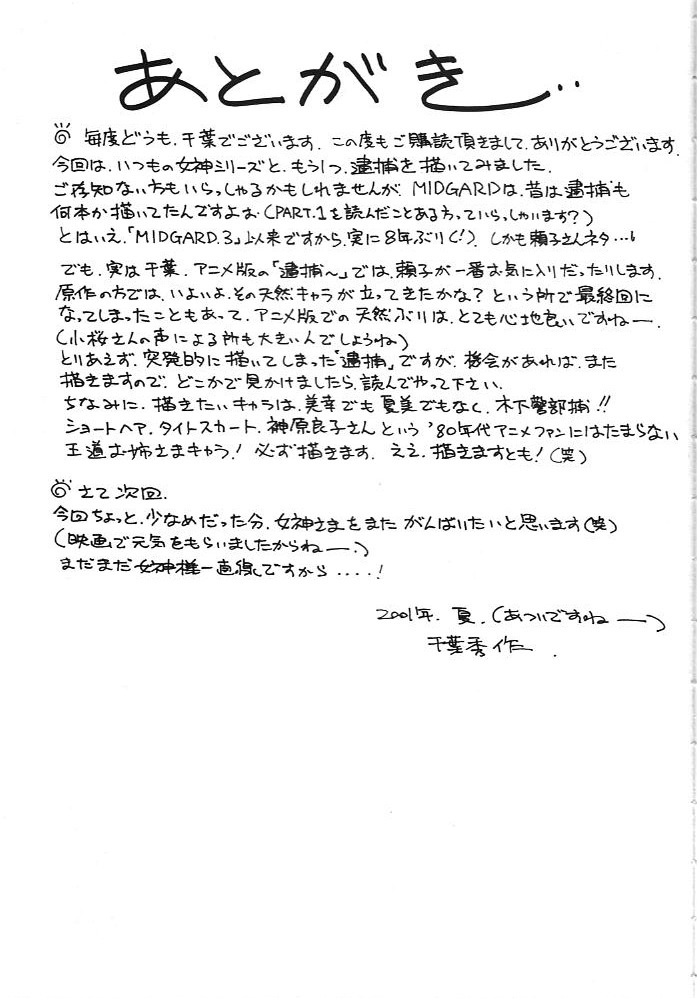 あとがき‥
◎ 毎度どうも.千葉でございます. この度もご購読頂きまして.ありがとうございます.
今回は.いつもの女神シリーズと.もう1つ.逮捕を描いてみました.
ご存知ない方もいらっしゃるかもしれませんが.MIDGARDは.昔は逮捕も
何本か描いてたんですよね.(PART.1を読んだことある方っていらっしゃいます?)
とはいえ.「MIDGARD.3」以来ですから.実に8年ぶり(!). しかも頼子さんネタ…。
でも.実は千葉.アニメ版の「逮捕〜」では.頼子が一番お気に入りだったりします.
原作の方では.いよいよ.その天然キャラが立ってきたかな?という所で最終回に
なってしまったこともあって.アニメ版での天然ぶりは.とても心地良いですねー.
(小桜さんの声による所も大きいんでしょうね)
とりあえず.突発的に描いてしまった「逮捕」ですが.機会があれば.また
描きますので.どこかで見かけましたら.読んでやって下さい.
ちなみに.描きたいキャラは.美幸でも夏美でもなく.木下警部捕!!
ショートヘア.タイトスカート.神原良子さんという'80年代アニメファンにはたまらない
王道お姉さまキャラ! 必ず描きます. ええ.描きますとも!(笑)
◎ さて次回.
今回ちょっと.少なめだった分.女神さまをまた がんばりたいと思います(笑)
(映画で元気をもらいましたからねー.)
まだまだ女神様一直線ですから....!
2001年.夏.(あついですねー)
千葉秀作.